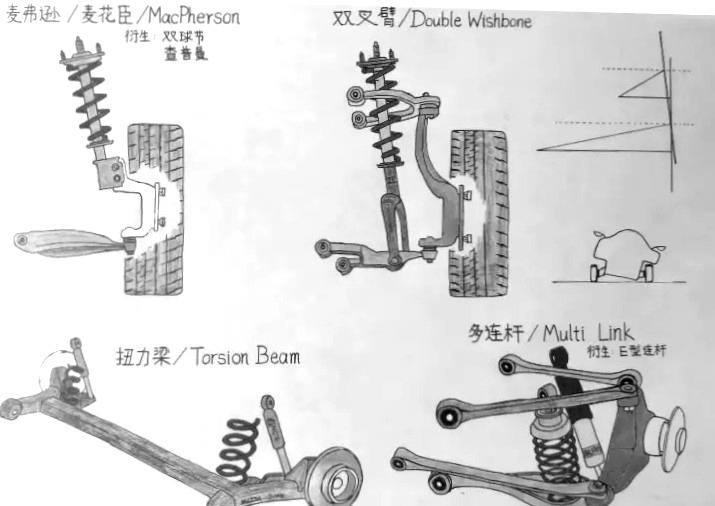 麦弗逊/麦花臣/MacPherson
衍生: 双球节
查普曼
双叉臂/Double Wishbone
扭力梁/Torsion Beam
多连杆/Multi Link
衍生: E型连杆